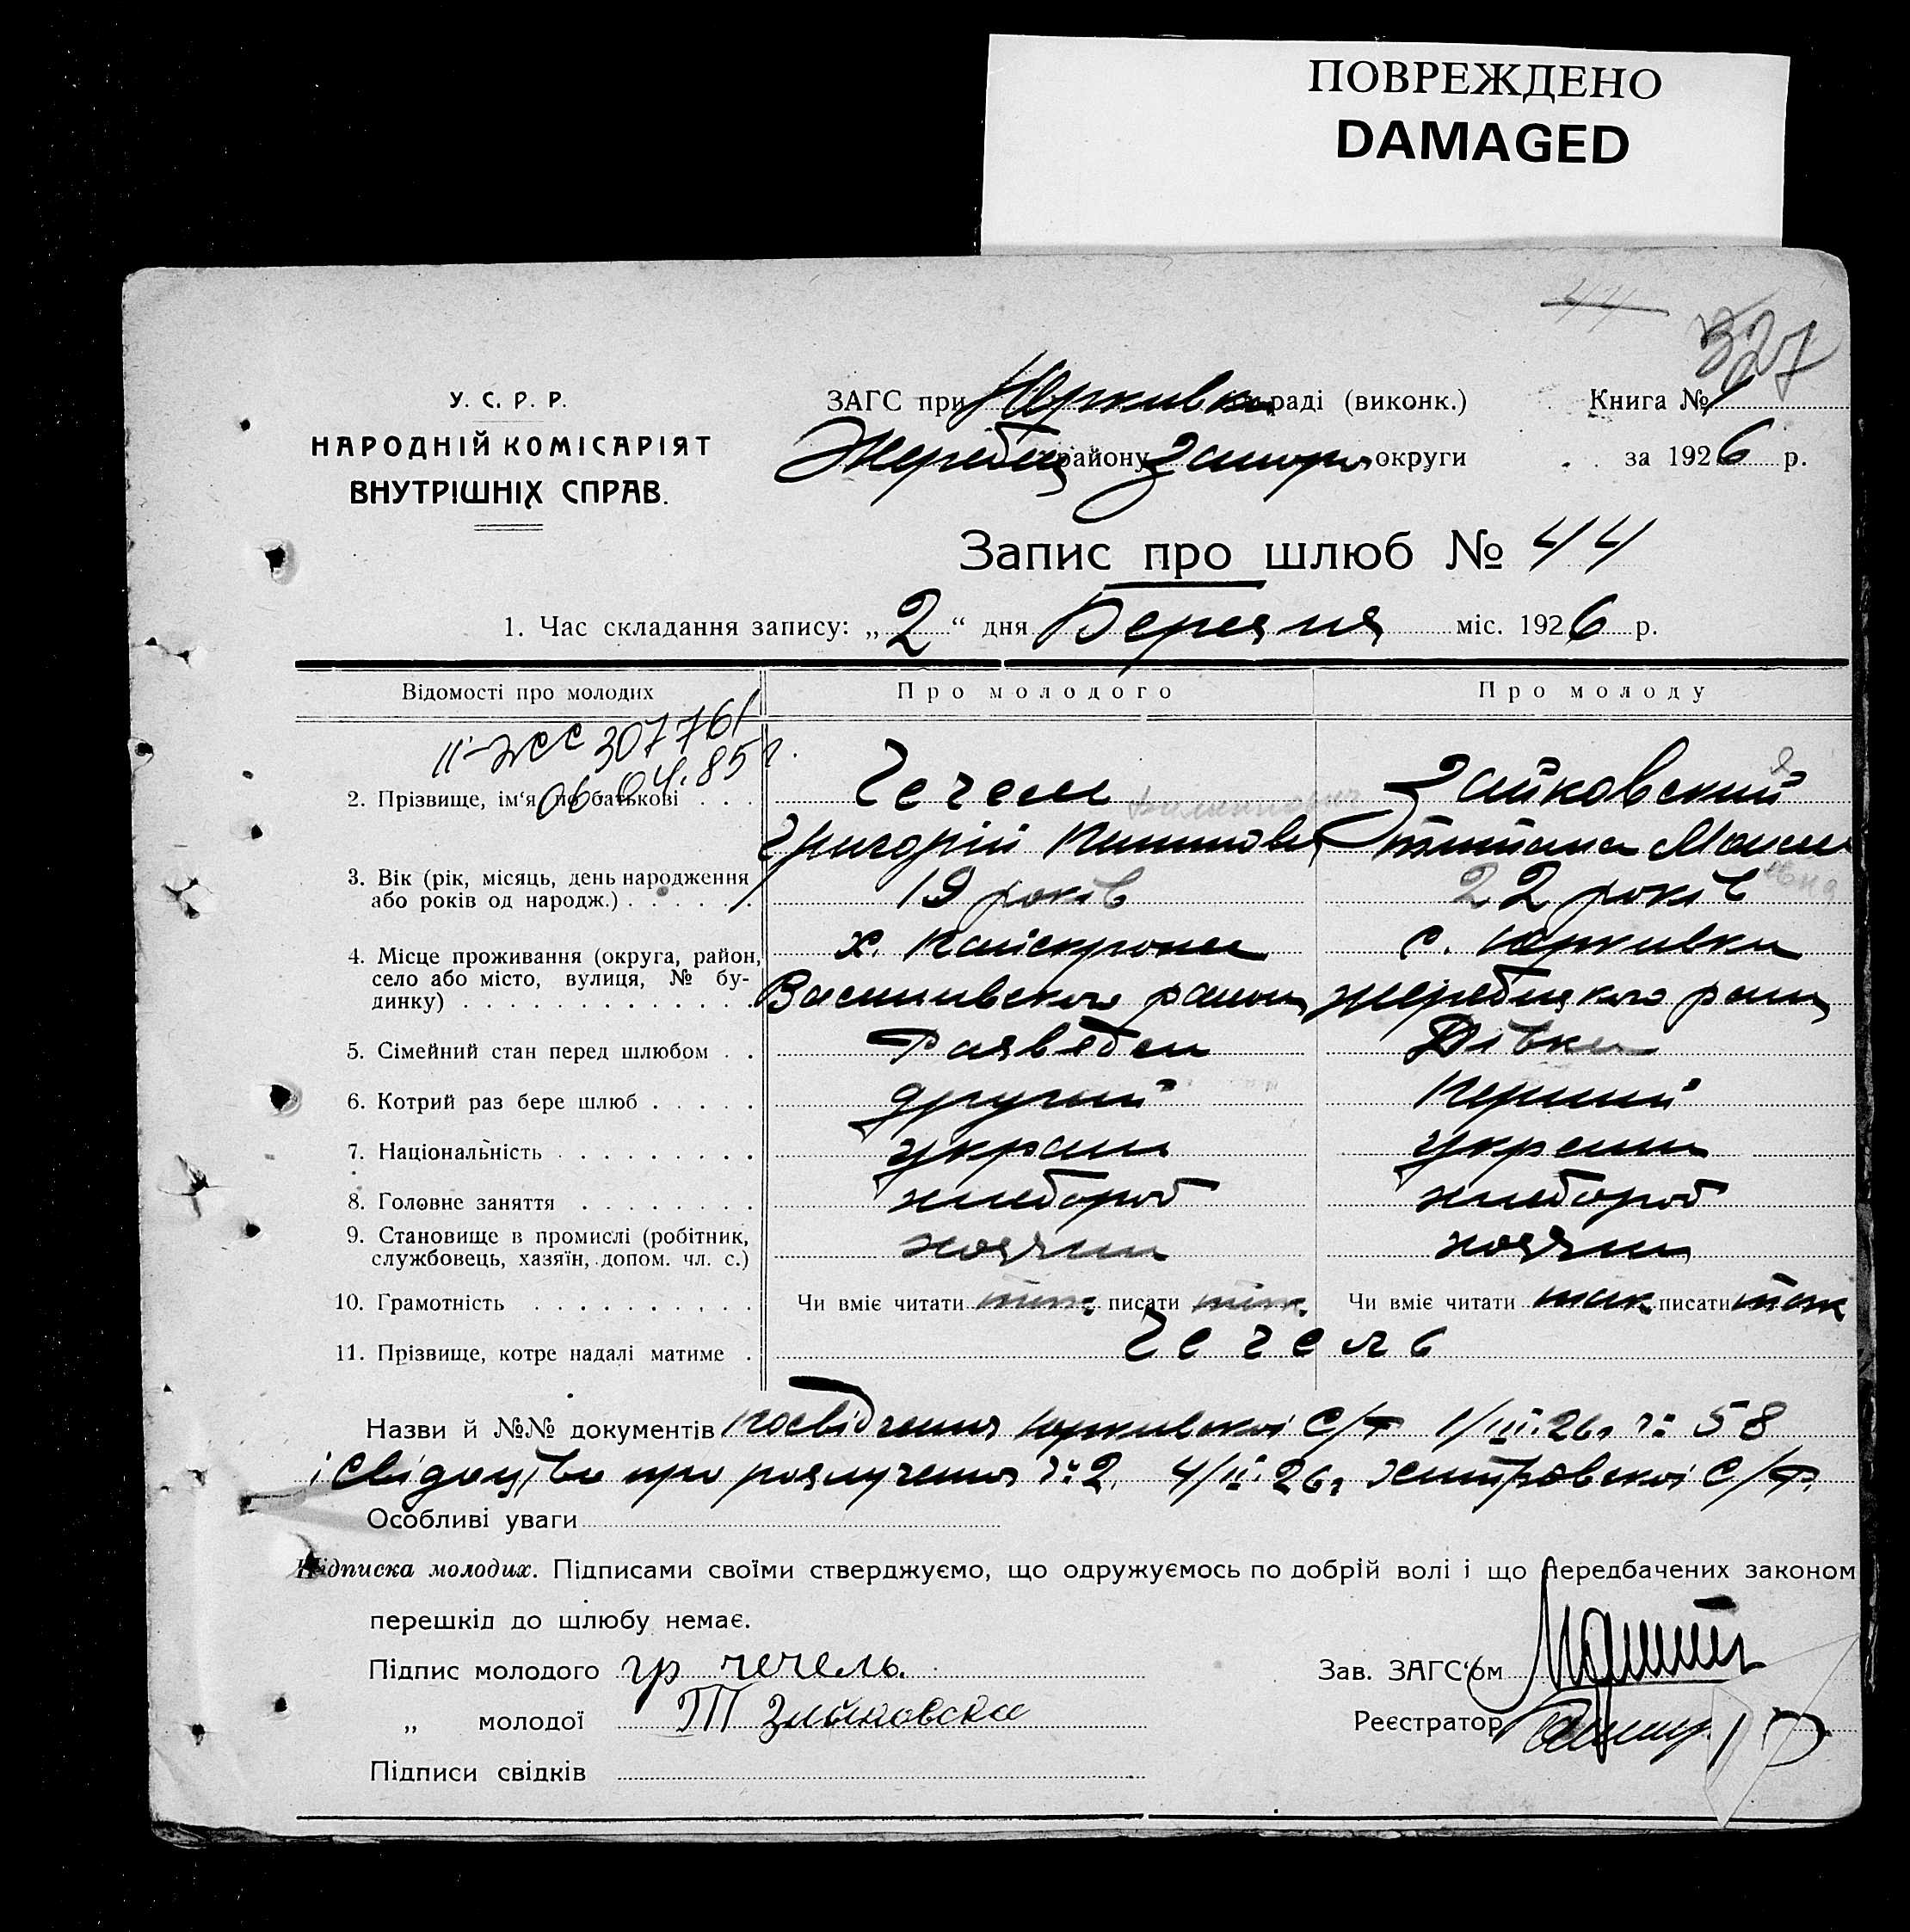 ПОВРЕЖДЕНО
DAMAGED
44
327
У. С. Р. Р.
НАРОДНІЙ КОМІСАРІЯТ
ВНУТРІШНІХ СПРАВ.
ЗАГС при Юрківка раді (виконк.) Книга № 1
Жеребец району Запор округи за 1926 р.
Запис про шлюб № 44
1. Час складання запису: „2“ дня Березня міс. 1926 р.
Відомості про молодих Про молодого Про молоду
307761
06.04.85 г.
2. Прізвище, ім'я, по батькові Чечель Зайковский
Григорій Тетяна
3. Вік (рік, місяць, день народження
або років од народж.) 19 років 22 років
4. Місце проживання (округа, район, х. с. Юрківка
село або місто, вулиця, № бу-
динку) Василівського району Жеребецкого раии
5. Сімейний стан перед шлюбом Разведен Дівка
6. Котрий раз бере шлюб другий Перший
7. Національність україн україн
8. Головне заняття хлебороб хлебороб
9. Становище в промислі (робітник, хозяин хозяин
службовець, хазяїн, допом. чл. с.)
10. Грамотність Чи вміє читати так писати так Чи вміє читати так писати так
11. Прізвище, котре надалі матиме Чечель
Назви й №№ документів Посвідчення Юрківскої С/Р 1/III 26 г № 58
і Свідоцтво про розлучення № 2 4/II 26 г С/Р.
Особливі уваги
Підписка молодих. Підписами своїми стверджуємо, що одружуємось по добрій волі і що передбачених законом
перешкід до шлюбу немає.
Підпис молодого гр чечель.
Зав. ЗАГС'ом
„ молодої Т Зайковска
Реєстратор
Підписи свідків